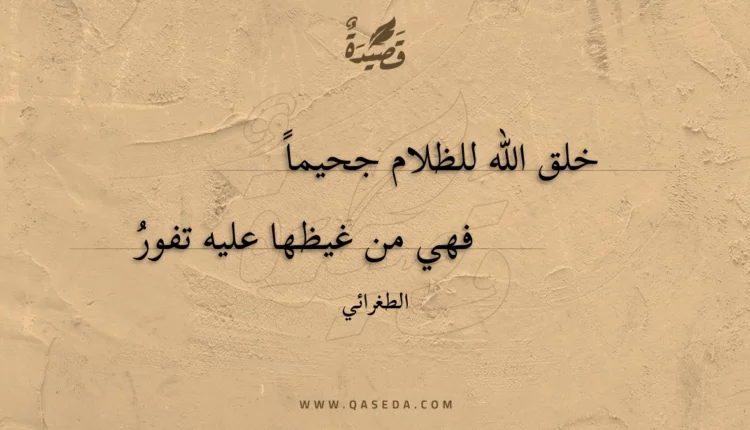 قَصِيدَةٌ
خلق الله للظلام جحيماً
فهي من غيظها عليه تفورُ
الطغرائي
WWW.QASEDA.COM